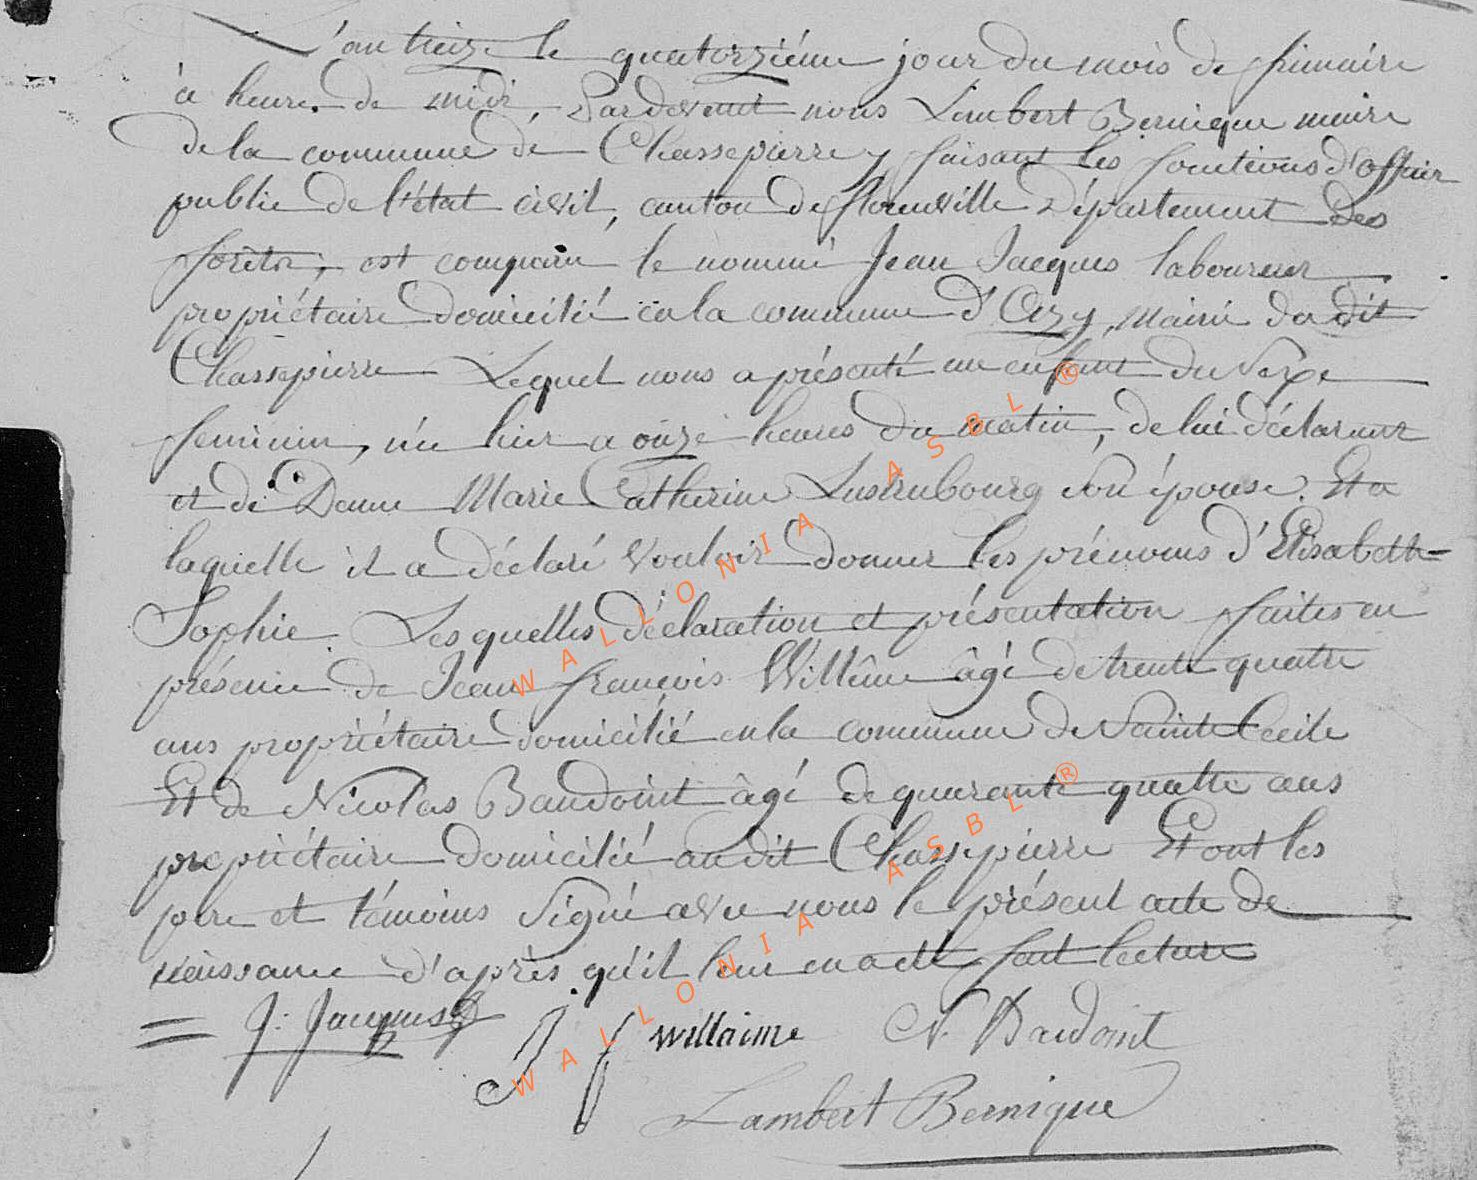 L'an treize le quatorziéme jour du mois de frimaire
à heure de midi, Pardevant nous Lambert Bernique maire
de la commune de Chassepierre, faisant les fonctions d'officier
public de l'état civil, canton de florenville Département des
forêts, est comparu le nommé Jean Jacques laboureur
propriétaire domicilié en la commune d'Azy, Mairie du dit
Chassepierre Lequel nous a présenté un enfant du Sexe
feminin, née hier a onze heures du matin, de lui déclarant
et de Dame Marie Catherine Luxembourg son épouse. Et a
laquelle il a déclaré vouloir donner les prénoms d'Elisabeth-
Sophie. Les quelles déclaration et présentation faites en
présence de Jean françois Willême âgé de trente quatre
ans propriétaire domicilié en la commune de Sainte Cecile
Et de Nicolas Baudoint âgé de quarante quatre ans
propriétaire domicilié au dit Chassepierre Et ont les
pere et témoins Signé avec nous le présent acte de
naissance d'après qu'il leur en a été fait lecture
J: Jacques
J f willaime N. Baudoint
Lambert Bernique
WALLONIA ASBL ®
WALLONIA ASBL ®